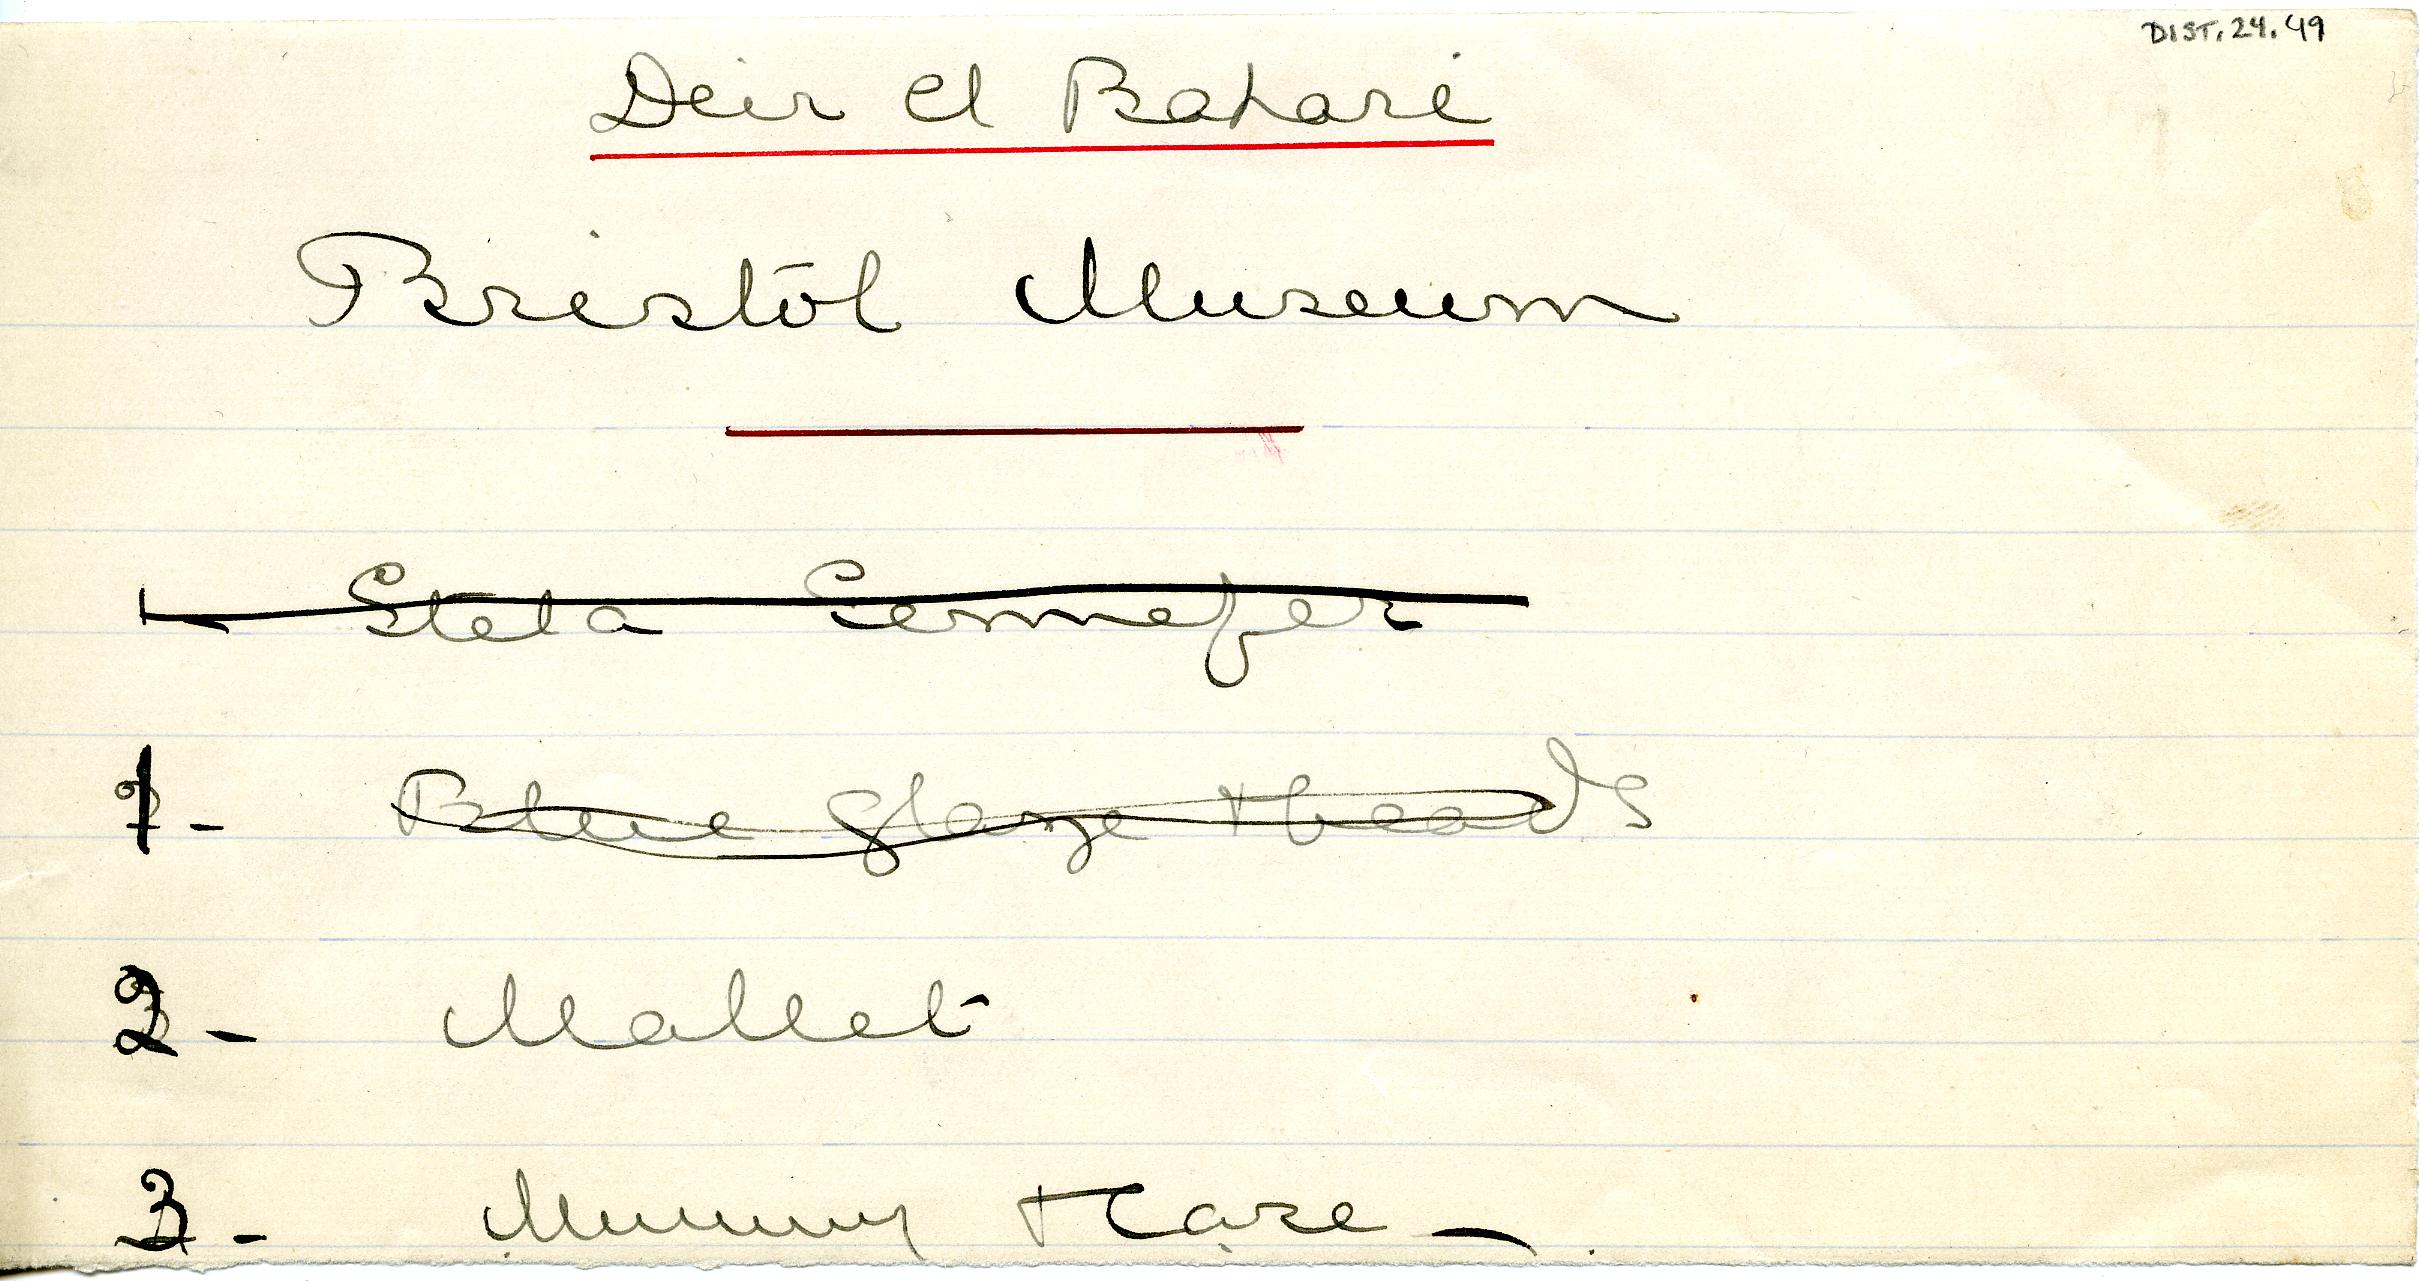 DIST. 24. 49
Deir el Bahari
Bristol Museum
1 - Stela Sennefer
1 - Blue glaze + beads
2 - Mallet
3 - Mummy + Case -